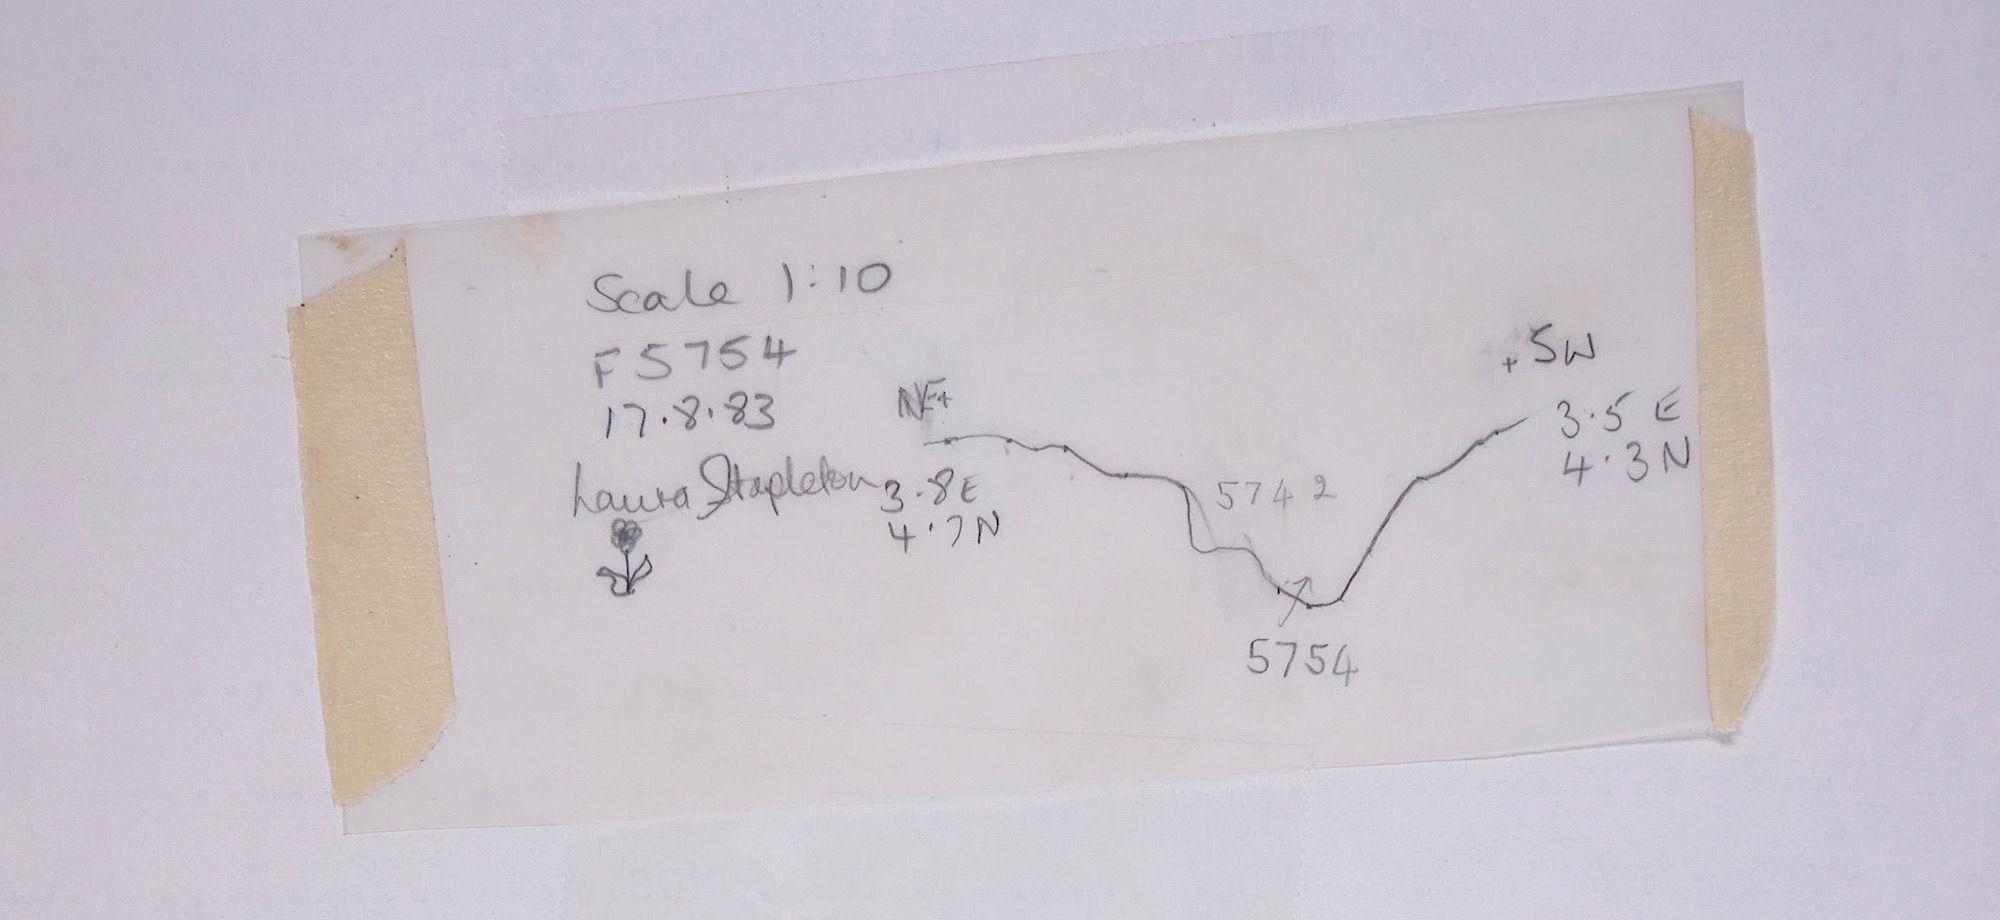 Scale 1:10
F5754
17.8.83
Laura Stapleton
NE+
3.8 E
4.7 N
5742
5754
+SW
3.5 E
4.3 N